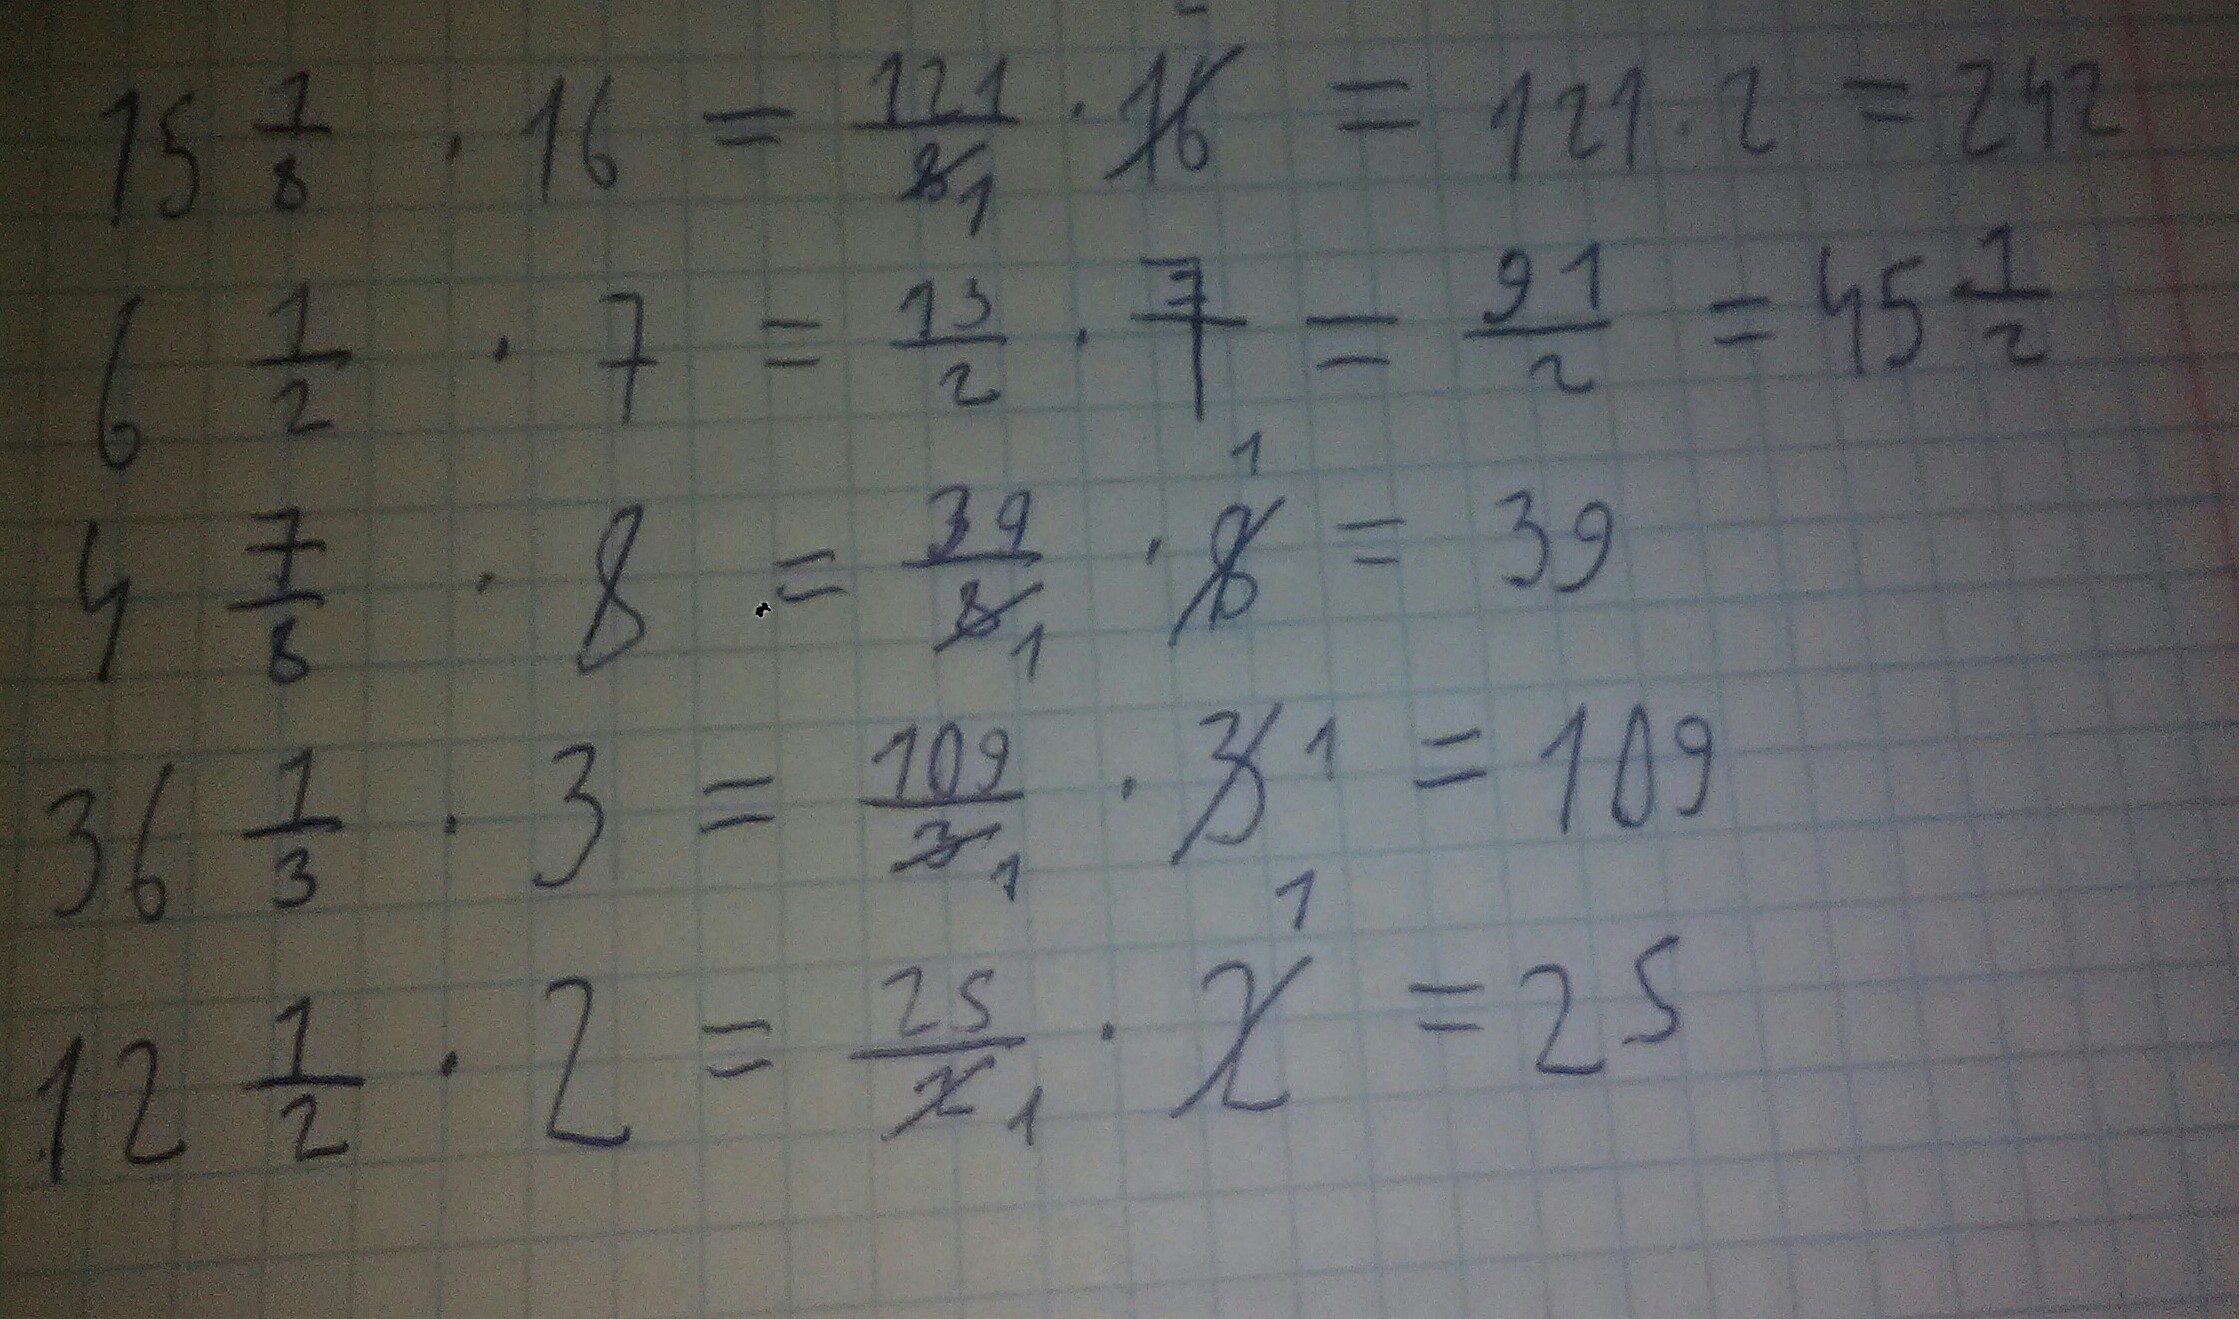 15 1/8 · 16 = 121/8 1 · 16 = 121 · 2 = 242
6 1/2 · 7 = 13/2 · 7 = 91/2 = 45 1/2
4 7/8 · 8 = 39/8 1 · 8 1 = 39
36 1/3 · 3 = 109/3 1 · 3 1 = 109
12 1/2 · 2 = 25/2 1 · 2 1 = 25